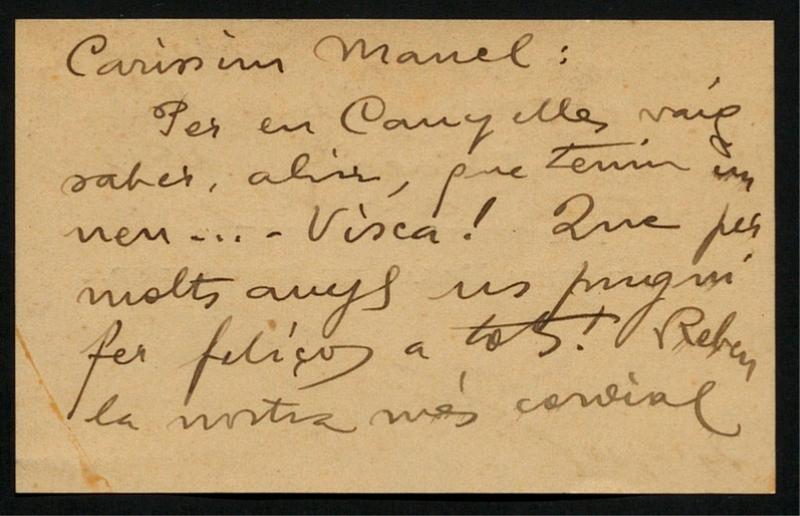 Caríssim Manel:
Per en Canyelles vaig
saber, ahir, que teniu un
neu... - Visca! Que per
molts anys us pugui
fer feliços a tots! Rebeu
la nostra més cordial